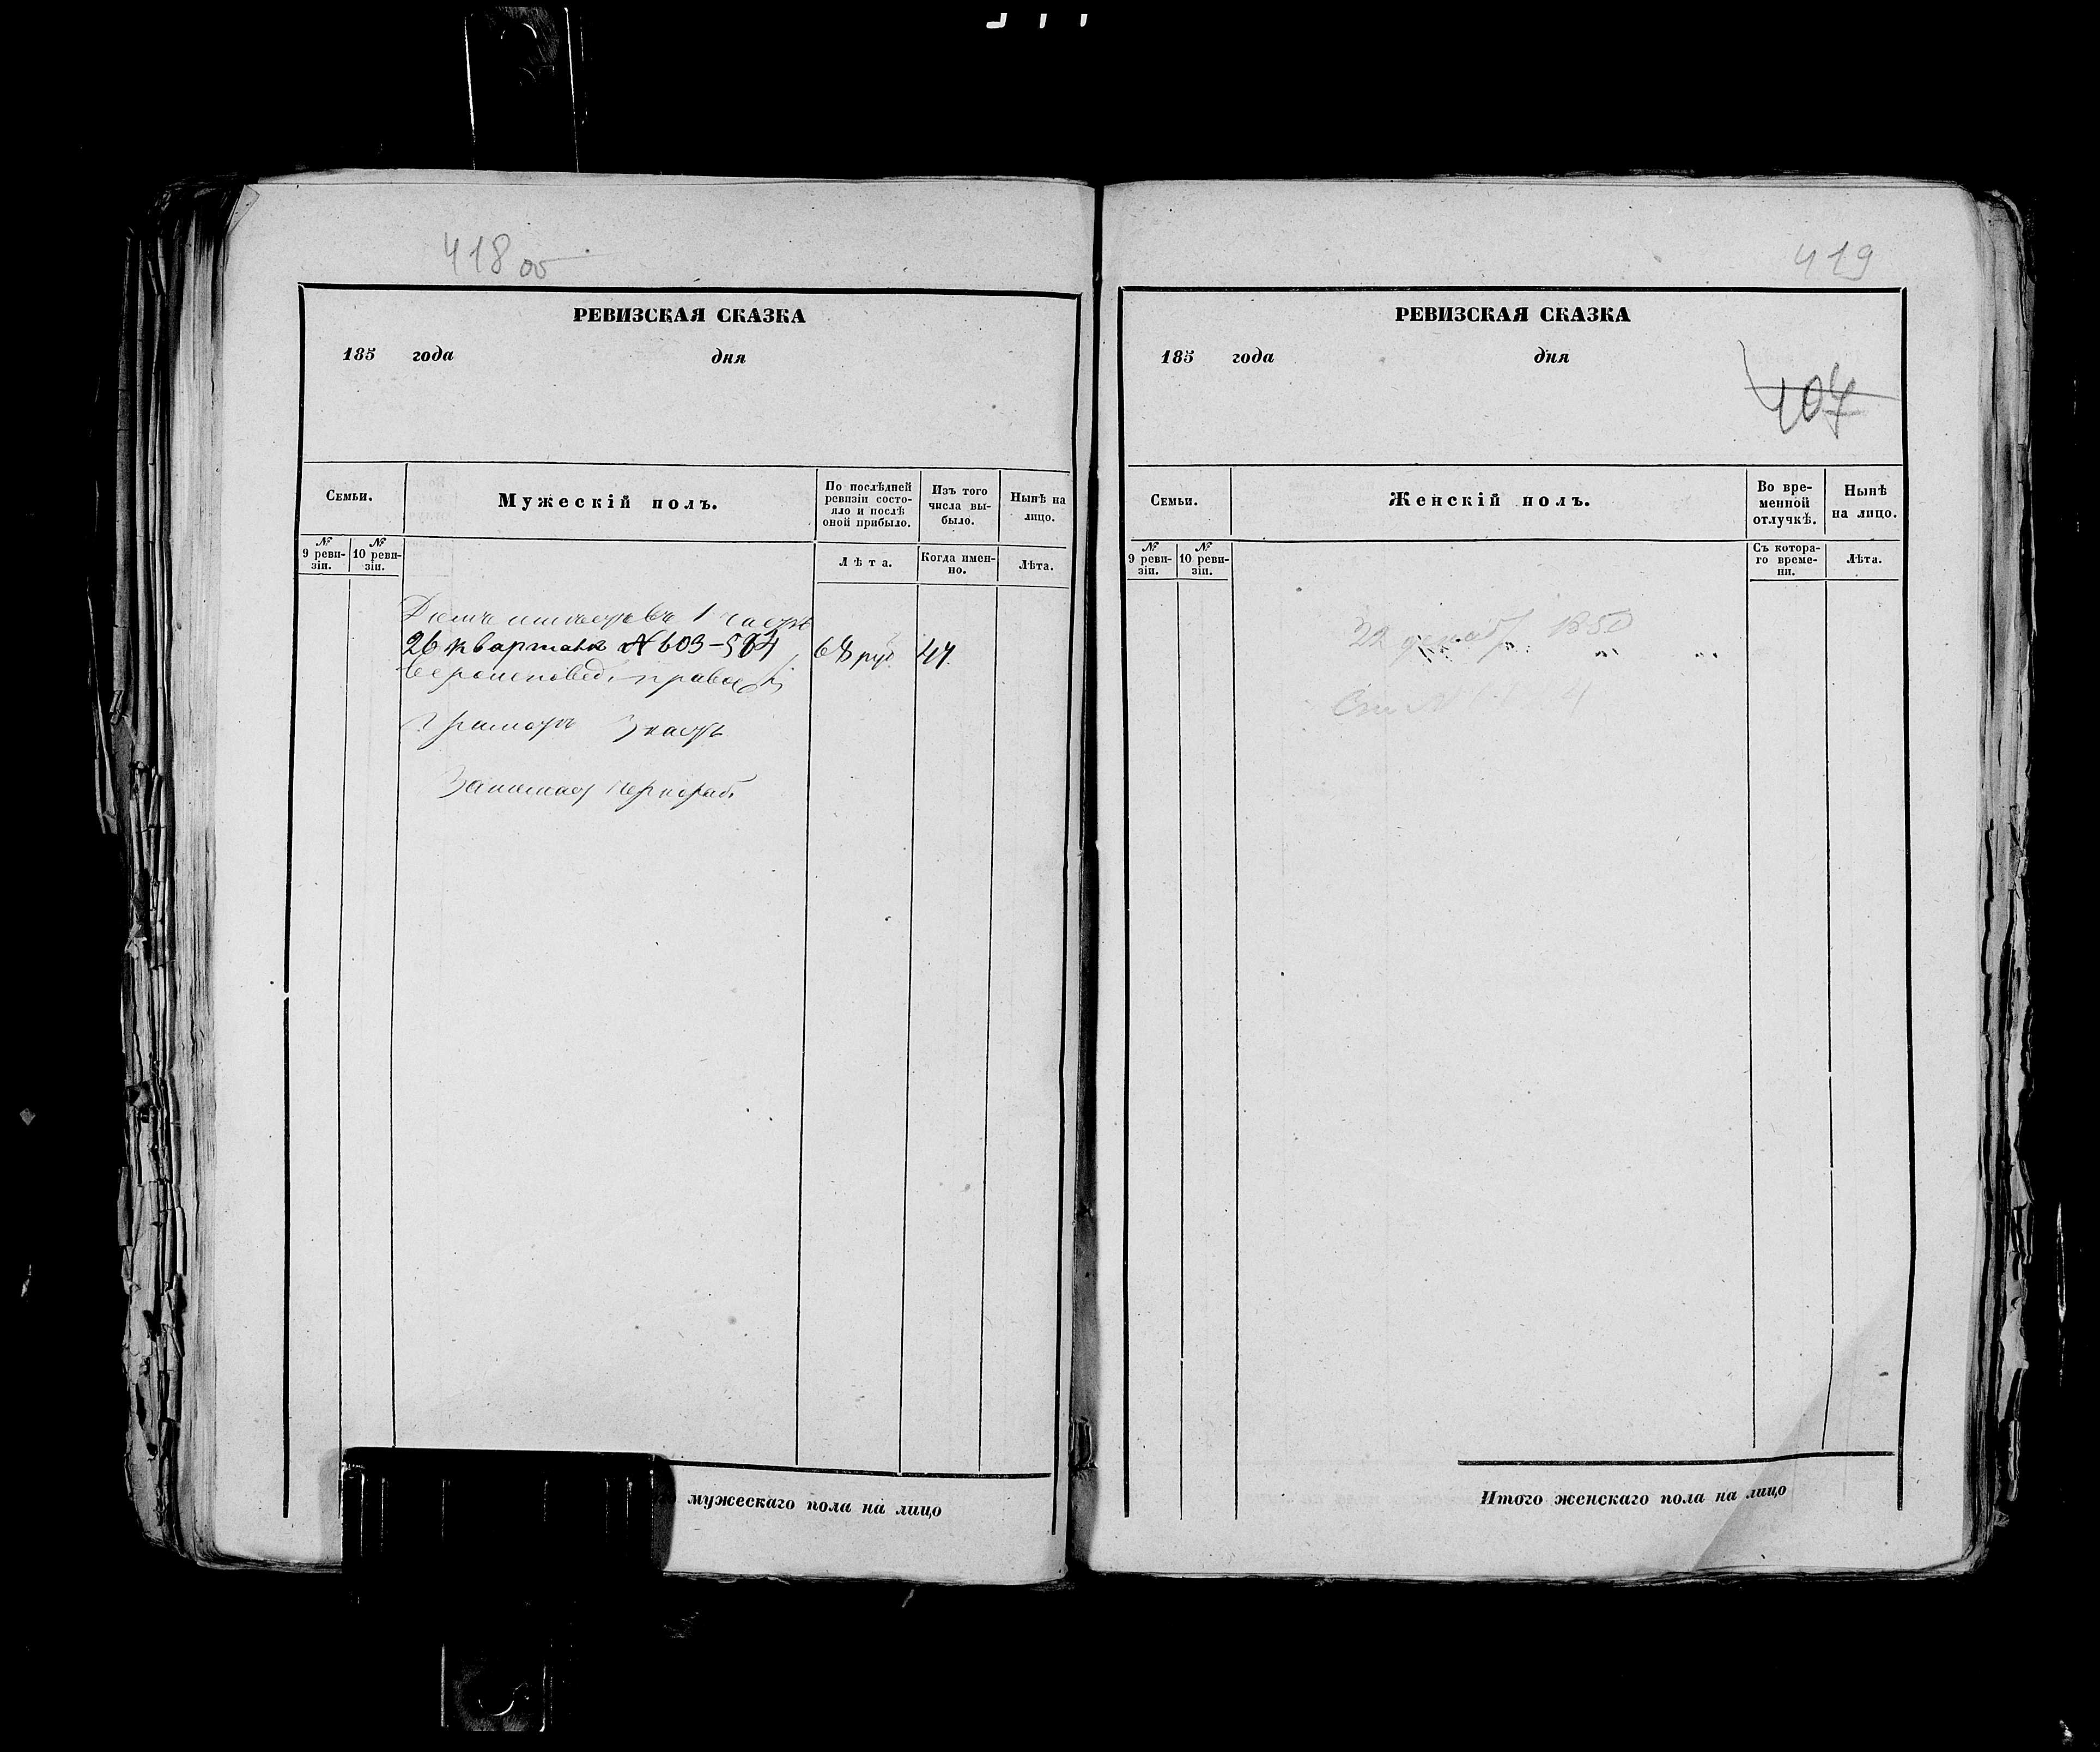 418 об
РЕВИЗСКАЯ СКАЗКА
185 года дня
Семьи.
Мужескій полъ.
По послѣдней ревизіи состо-
яло и послѣ
оной прибыло.
Изъ того
числа вы-
было.
Нынѣ на
лицо.
№
9 реви-
зіи.
№
10 реви-
зіи.
Лѣта.
Когда имен-
но.
Лѣта.
Домъ имѣетъ въ 1 части
26 квартала № 603-594 68 руб 44.
вероисповед. правосл
Грамоте знаетъ
Занимает
мужескаго пола на лицо
419
РЕВИЗСКАЯ СКАЗКА
185 года дня
407
Семьи.
Женскій полъ.
Во вре-
менной
отлучкѣ.
Нынѣ
на лицо.
№
9 реви-
зіи.
№
10 реви-
зіи.
Съ котора-
го време-
ни.
Лѣта.
22 декаб 1850
Итого женскаго пола на лицо